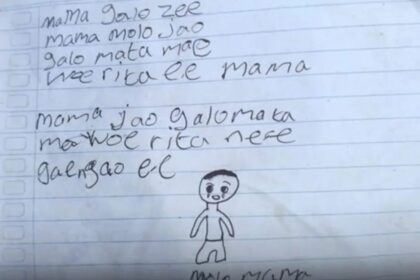 mama galo zee
mama molo jao
galo mata mae
woe rita ee mama
mama jao galomata
woe rita nere
ee
mama